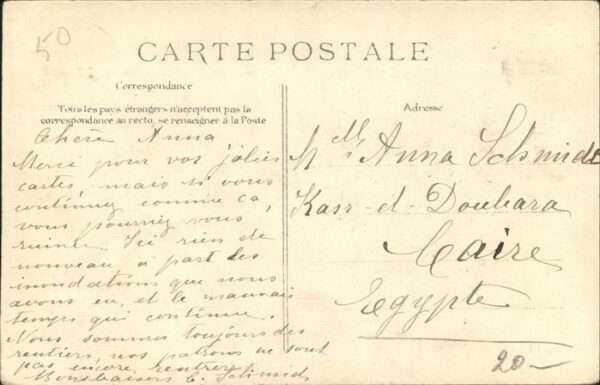 50
CARTE POSTALE
Correspondance
Tous les pays étrangers n'acceptent pas la
correspondance au recto, se renseigner à la Poste
Adresse
Chère Anna
Merci pour vos jolies
cartes, mais si vous
continuez comme ça,
vous pourriez vous
ruiner. Ici rien de
nouveau à part les
inondations que nous
avons eu, et le mauvais
temps qui continue.
Nous sommes toujours des
rentiers, nos patrons ne sont
pas encore rentrés
Bons baisers C. Schmidt
Mlle Anna Schmidt
Kasr-el-Doubara
Caire
Egypte
20-